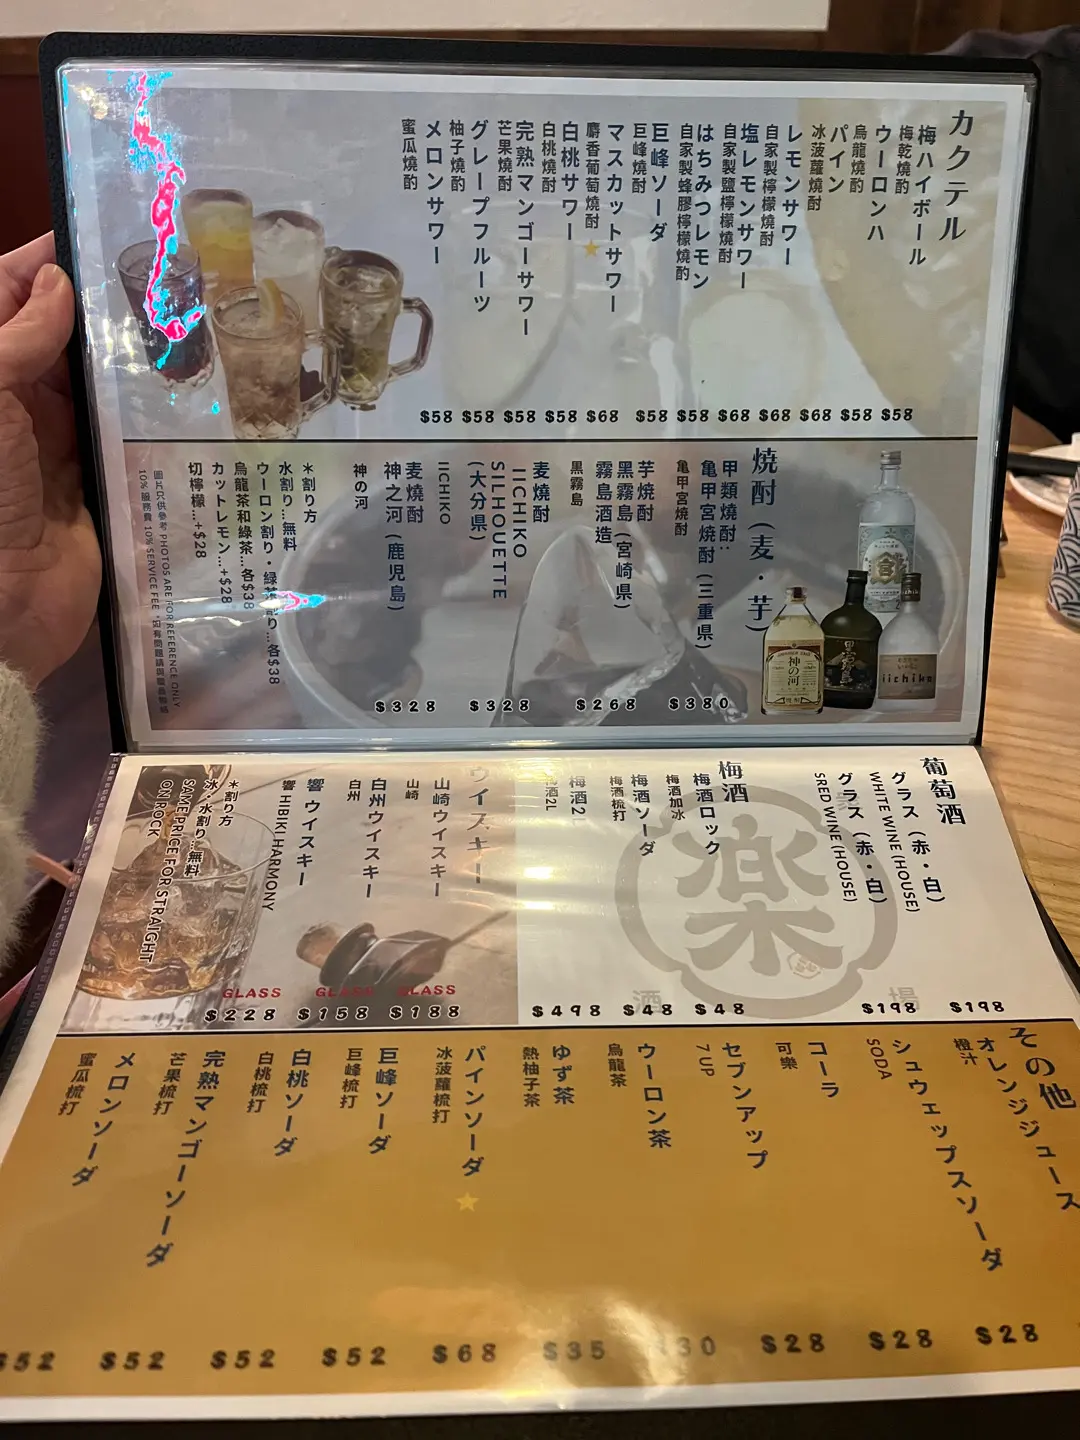 カクテル
梅ハイボール
梅乾燒酎
ウーロンハ
烏龍燒酎
パイン
冰菠蘿燒酎
レモンサワー
自家製檸檬燒酎
塩レモンサワー
自家製鹽檸檬燒酎
はちみつレモン
自家製蜂膠檸檬燒酎
巨峰ソーダ
巨峰燒酎
マスカットサワー
麝香葡萄燒酎
白桃サワー
白桃燒酎
完熟マンゴーサワー
芒果燒酎
グレープフルーツ
柚子燒酎
メロンサワー
蜜瓜燒酎
$58 $58 $58 $58 $68 $58 $58 $68 $68 $68 $58 $58
焼酎（麦・芋）
甲類燒酎：
亀甲宮焼酎（三重県）
亀甲宮燒酎
芋焼酎
黑霧島（宮崎県）
霧島酒造
黑霧島
麦燒酎
IICHIKO
SILHOUETTE
（大分県）
IICHIKO
麦燒酎
神之河（鹿児島）
神の河
＊割り方
水割り…無料
ウーロン割り・緑茶割り…各$38
烏龍茶和綠茶…各$38
カットレモン…+$28
切檸檬…+$28
圖片只供參考 PHOTOS ARE FOR REFERENCE ONLY
10% 服務費 10% SERVICE FEE
神の河
iichiko
$328 $328 $268 $380
葡萄酒
グラス（赤・白）
WHITE WINE (HOUSE)
グラス（赤・白）
SRED WINE (HOUSE)
梅酒
梅酒ロック
梅酒加冰
梅酒ソーダ
梅酒梳打
梅酒2
酒2L
ウイスキー
山崎ウイスキー
山崎
白州ウイスキー
白州
響 ウイスキー
響 HIBIKI HARMONY
＊割り方
氷／水割り…無料
SAME PRICE FOR STRAIGHT
ON ROCK
楽
酒 場
GLASS GLASS GLASS
$228 $158 $188 $498 $48 $48 $198 $198
その他
オレンジジュース
橙汁
シュウェップスソーダ
SODA
コーラ
可樂
セブンアップ
7 UP
ウーロン茶
烏龍茶
ゆず茶
熱柚子茶
パインソーダ
冰菠蘿梳打
巨峰ソーダ
巨峰梳打
白桃ソーダ
白桃梳打
完熟マンゴーソーダ
芒果梳打
メロンソーダ
蜜瓜梳打
$52 $52 $52 $52 $68 $35 $30 $28 $28 $28